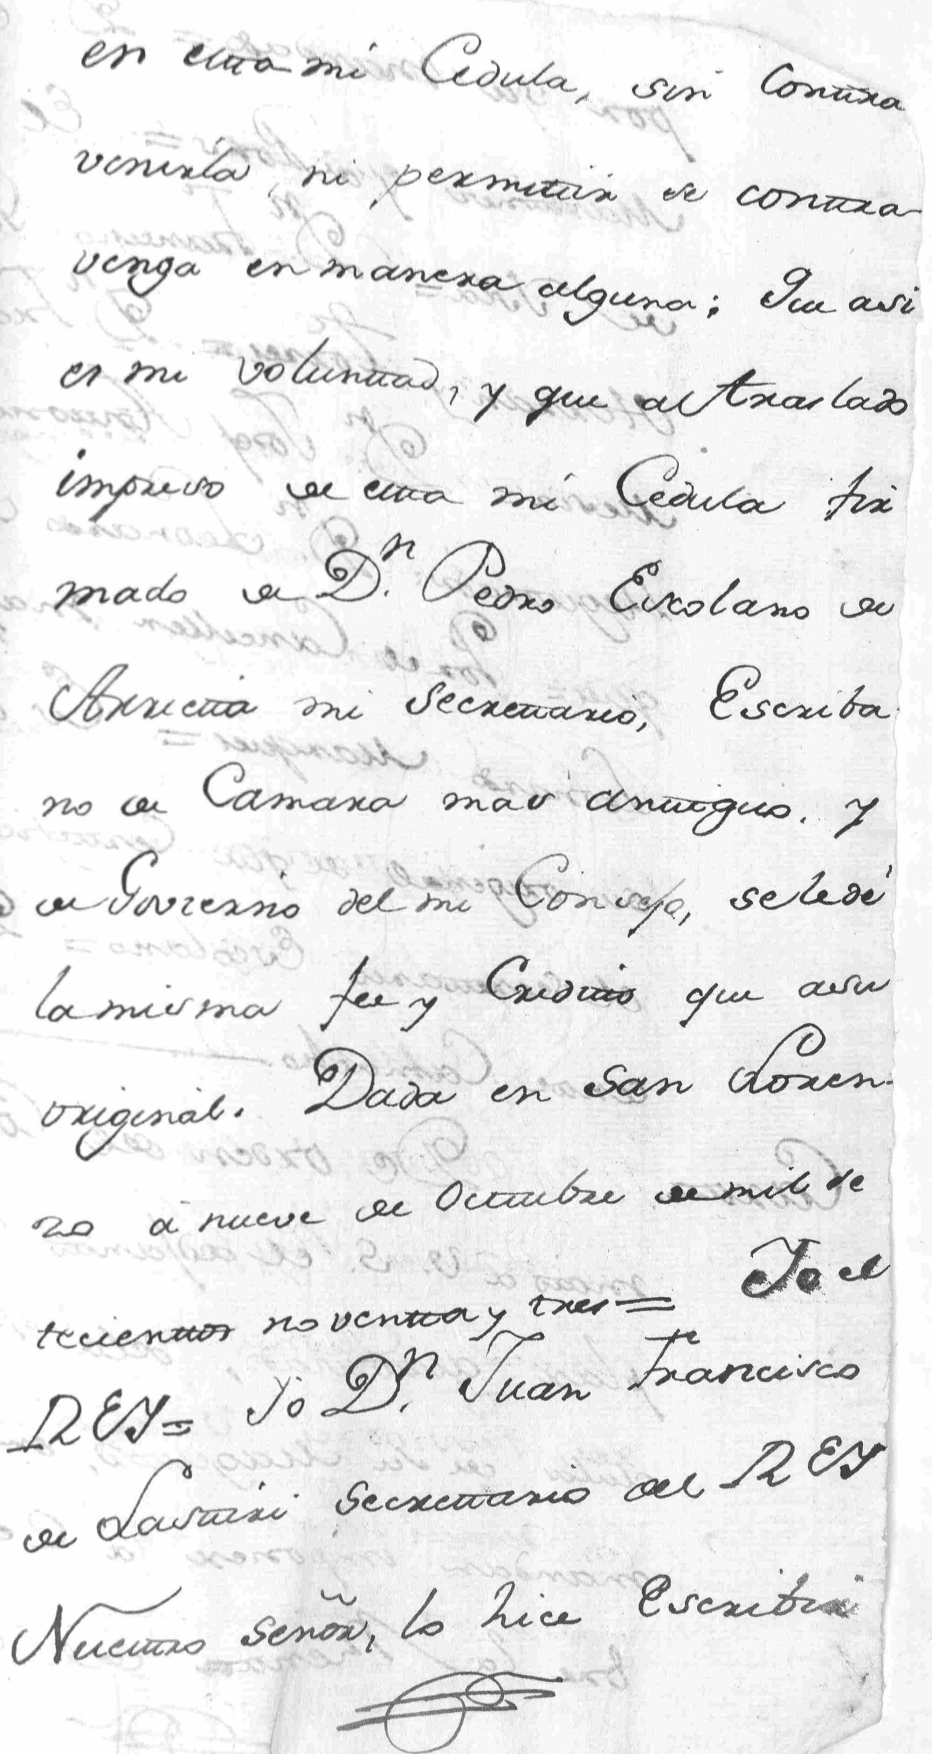 en esta mi Cedula, sin Contra
venirla, ni permitir se contra-
venga en manera alguna; Que asi
es mi voluntad, y que al traslado
impreso de esta mi Cedula fir
mado de Dn. Pedro Escolano de
Arrieta mi Secretario, Escriba
no de Camara mas antiguo. y
de Govierno del mi Consejo, se le dé
la misma fee y Credito que a su
original. Dada en San Loren-
zo á nueve de Octubre de mil se
tecientos noventa y tres = Yo el
REY = Yo Dn. Juan Francisco
de Lastiri Secretario del REY
Nuestro Señor, lo hice Escribir